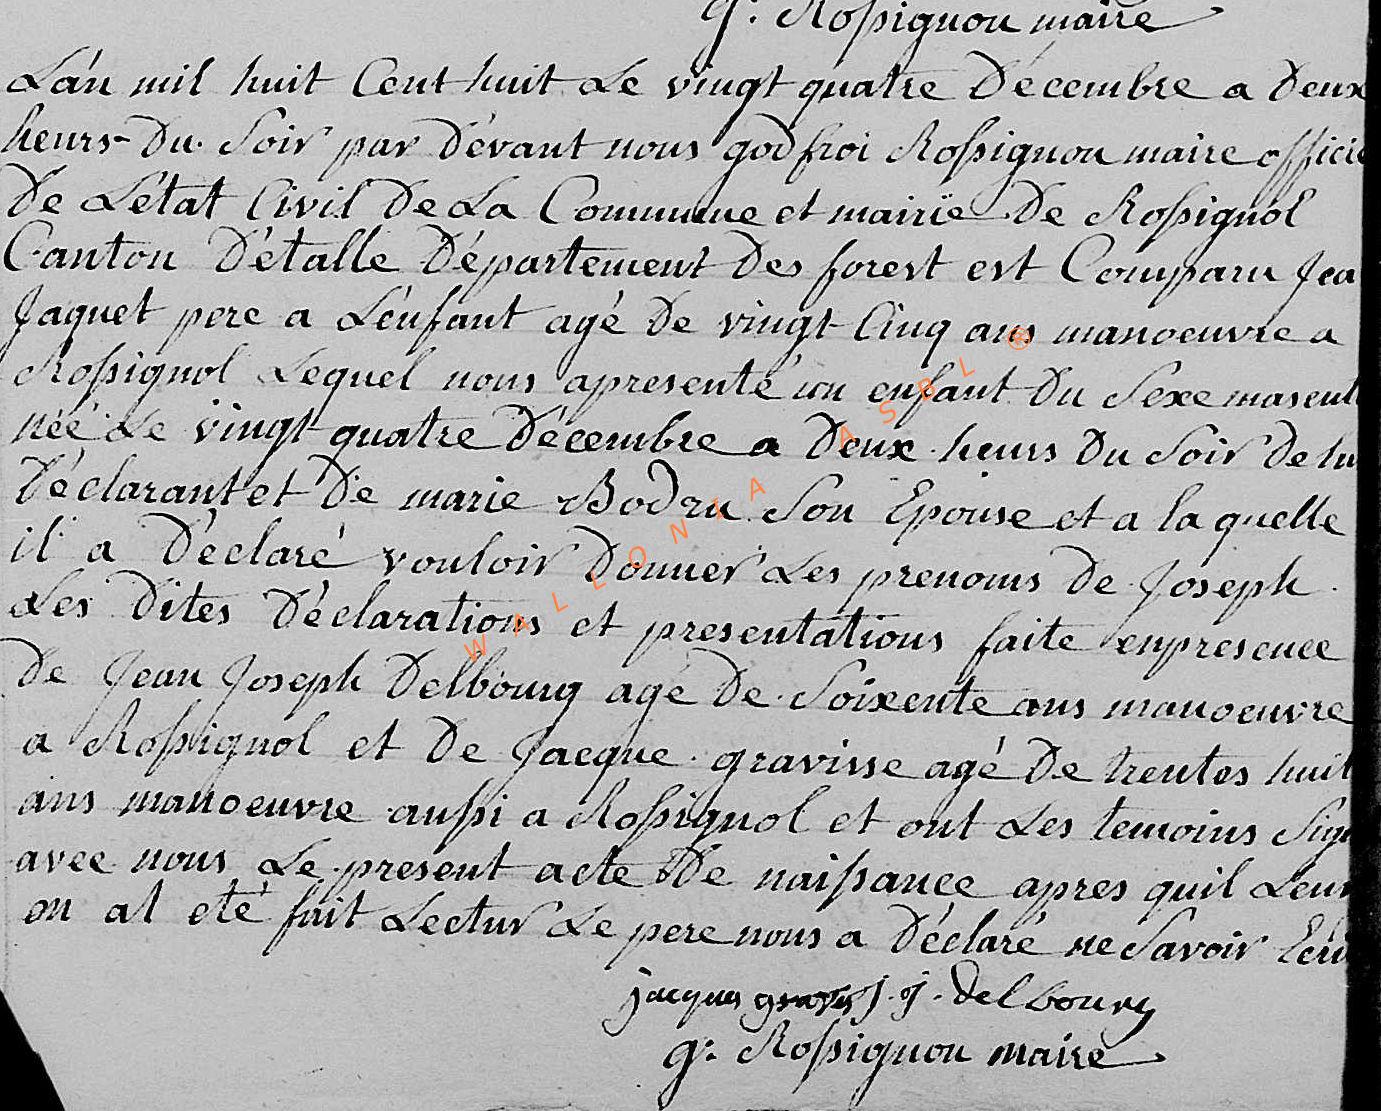 g. Rossignon maire
L'an mil huit Cent huit Le vingt quatre Décembre a Deux
heurs Du Soir par Dévant nous godfroi Rossignon maire officie
De L'état Civil De La Commune et mairië De Rossignol
Canton D'étalle Département Des forest est Comparu Jea
Jaquet pere a L'enfant agé De vingt Cinq ans manoeuvre a
Rossignol Lequel nous apresenté un enfant Du Sexe mascul
néé Le vingt quatre Décembre a Deux heurs Du Soir De lui
Déclarant et De marie Bodru Son Epouse et a la quelle
il a Déclaré vouloir Donner Les prenoms De Joseph
Les Dites Déclarations et presentations faite enpresence
De Jean Joseph Delbourg agé De Soixente ans manoeuvre
a Rossignol et De Jacque gravisse agé De trentes huit
ans manoeuvre aussi a Rossignol et ont Les temoins Sign
avec nous Le present acte De naissance apres quil Leur
en at eté fait Lectur Le pere nous a Déclaré ne Savoir Ecri
jacques J. j. delbourg
g. Rossignon maire
WALLONIA ASBL ®